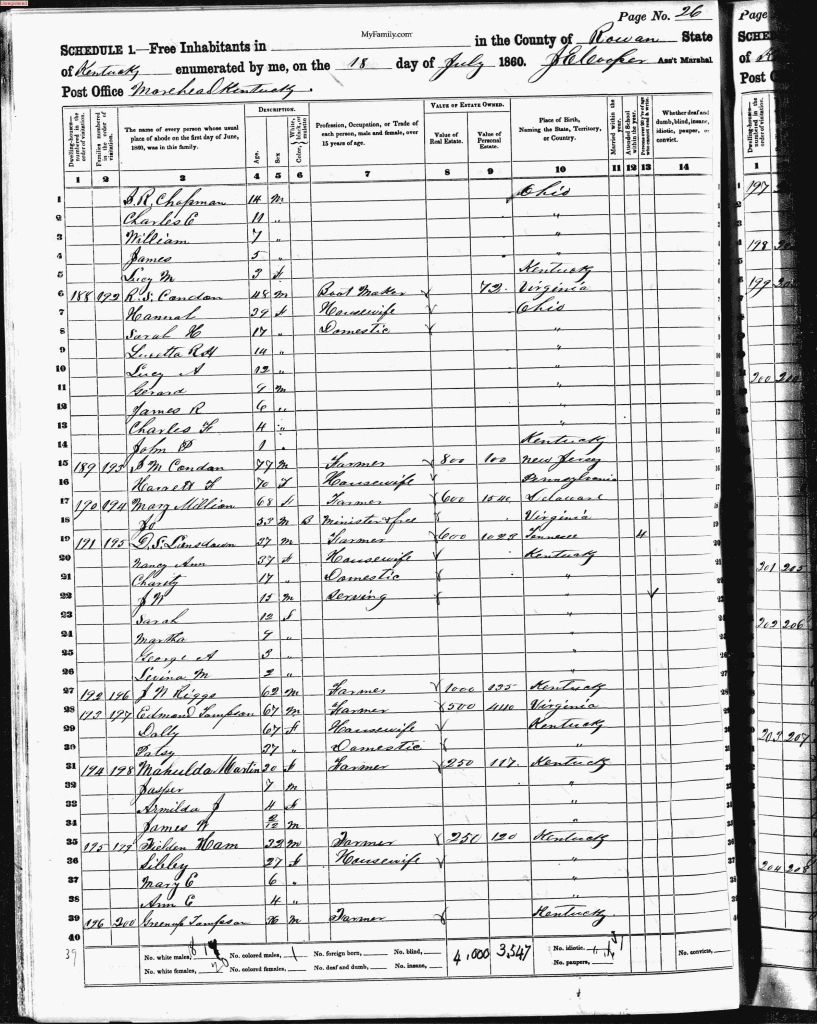 MyFamily.com
Page No. 26
SCHEDULE 1.—Free Inhabitants in in the County of Rowan State
of Kentucky enumerated by me, on the 18 day of July 1860. J E Cooper Ass't Marshal
Post Office Morehead Kentucky.
Dwelling-houses—numbered in the order of visitation. Families numbered in the order of visitation. The name of every person whose usual place of abode on the first day of June, 1860, was in this family. DESCRIPTION. Age. Sex Color, White, black, or mulatto Profession, Occupation, or Trade of each person, male and female, over 15 years of age. VALUE OF ESTATE OWNED. Value of Real Estate. Value of Personal Estate. Place of Birth, Naming the State, Territory, or Country. Married within the year. Attended School within the year. Whether deaf and dumb, blind, insane, idiotic, pauper, or convict.
1 2 3 4 5 6 7 8 9 10 11 12 13 14
1 S. R. Chapman 14 m Ohio
2 Charles E 11 " "
3 William 7 " "
4 James 5 " "
5 Lucy M 3 f Kentucky
6 188 192 R. S. Condon 48 m Boot Maker 72 Virginia
7 Hannah 39 f Housewife Ohio
8 Sarah H 17 " Domestic "
9 Luretta R H 14 " "
10 Lucy A 12 " "
11 Gerard 9 m "
12 James R 6 " "
13 Charles F 4 " "
14 John P 1 Kentucky
15 189 193 J M Condon 77 m Farmer 800 100 New Jersy
16 Harrett F 70 F Housewife Pennsylvania
17 190 194 Mary Million 68 f Farmer 600 1540 Delaware
18 Jo 53 m B Minister & free Virginia
19 191 195 D. S. Lansdown 37 m Farmer 600 1023 Tennesee 4
20 Nancy Ann 37 f Housewife Kentucky
21 Charity 17 " Domestic "
22 J W 15 m Serving "
23 Sarah 12 f "
24 Martha 9 " "
25 George A 3 " "
26 Levina M 2 " "
27 192 196 J W Riggs 62 m Farmer 1000 135 Kentucky
28 193 197 Edmond Tompson 67 m Farmer 500 440 Virginia
29 Dolly 67 f Housewife Kentucky
30 Patsy 27 " Domestic "
31 194 198 Mahulda Martin 20 f Farmer 250 117 Kentucky
32 Jasper 7 m "
33 Armilda J 4 f "
34 James W 2/12 m "
35 195 199 Fielden Ham 32 m Farmer 250 120 Kentucky
36 Sibbey 27 f Housewife "
37 Mary E 6 " "
38 Ann E 4 " "
39 196 200 Greenup Tompson m Farmer Kentucky
40
39 No. white males, No. colored males, 1 No. foreign born, No. blind, 4,000 3,547 No. idiotic, No. convicts,
No. white females, 20 No. colored females, No. deaf and dumb, No. insane, No. paupers,
Page
SCHED
of
Post O
1
1 197
198
199
200
201 205
202 206
203 207
204 208